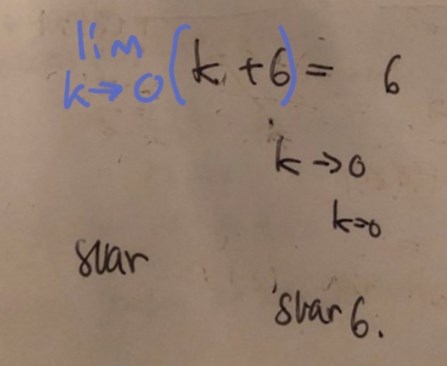 lim
k→0 (k + 6) = 6
k →0
k=0
svar
svar 6.